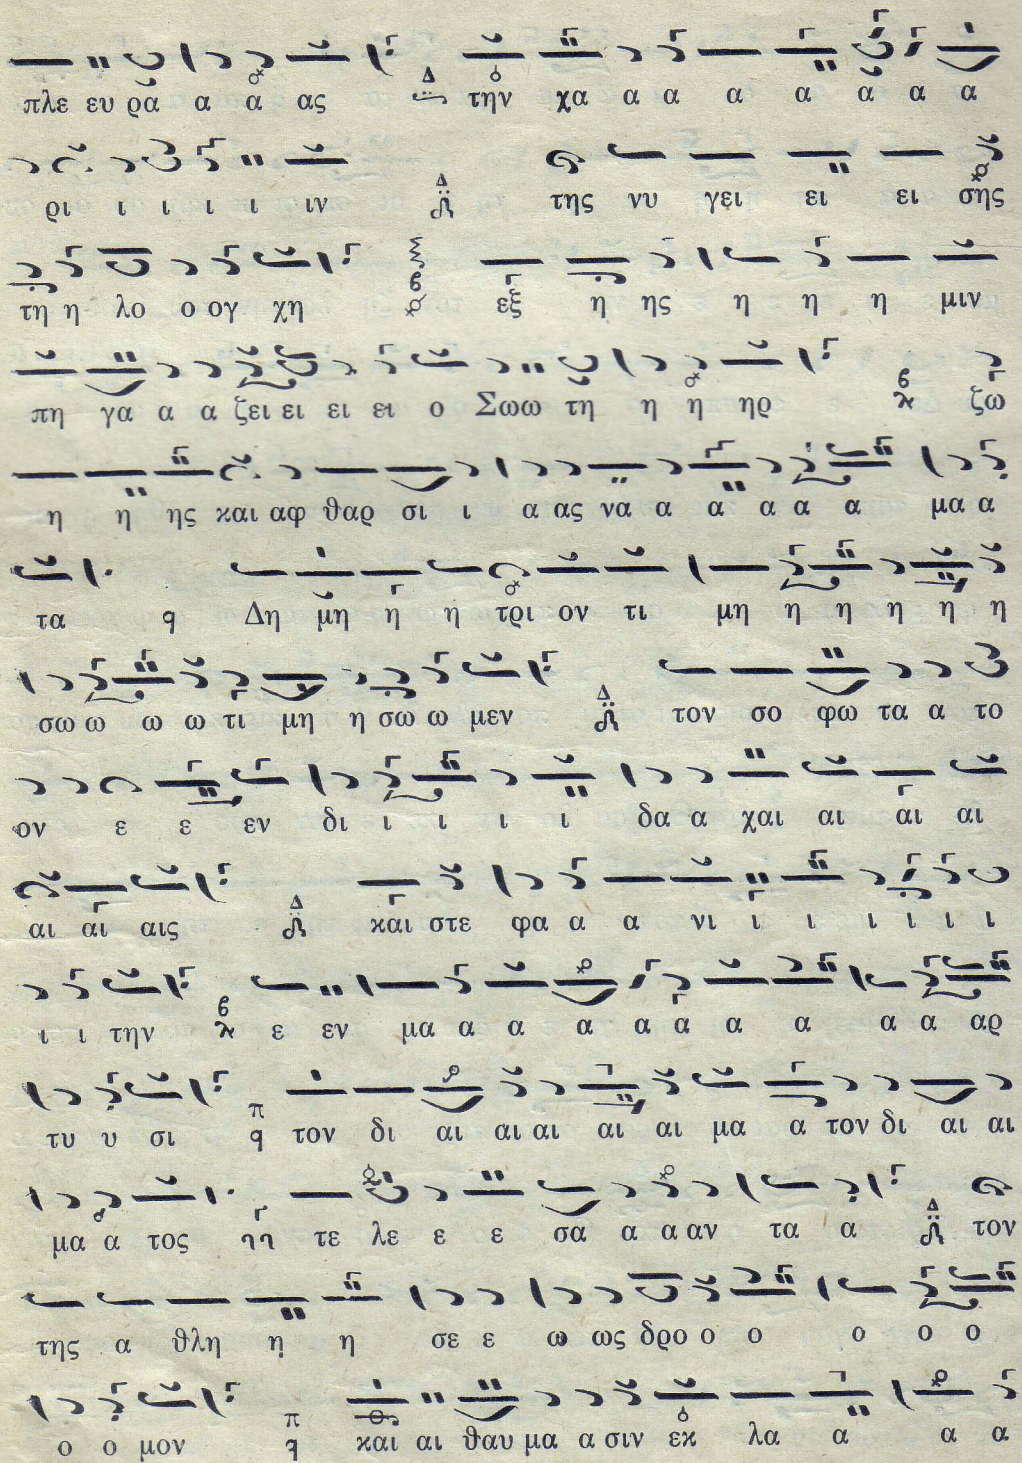 πλε ευ ρα α α ας Δ την χα α α α α α α α
ρι ι ι ι ι ιν Δ της νυ γει ει ει σης
τη η λο ο ογ χη εξ η ης η η η μιν
πη γα α α ζει ει ει ει ο Σωω τη η η ηρ ζω
η η ης και αφ θαρ σι ι α ας να α α α α α μα α
τα q Δη μη η η τρι ον τι μη η η η η η
σω ω ω ω τι μη η σω ω μεν Δ τον σο φω τα α το
ον ε ε εν δι ι ι ι ι δα α χαι αι αι αι
αι αι αις Δ και στε φα α α νι ι ι ι ι ι ι
ι ι την ε εν μα α α α α α α α α α αρ
τυ υ σι π q τον δι αι αι αι αι αι μα α τον δι αι αι
μα α τος τε λε ε ε σα α α αν τα α Δ τον
της α θλη η η σε ε ω ως δρο ο ο ο ο ο
ο ο μον π q και αι θαυ μα α σιν εκ λα α α α